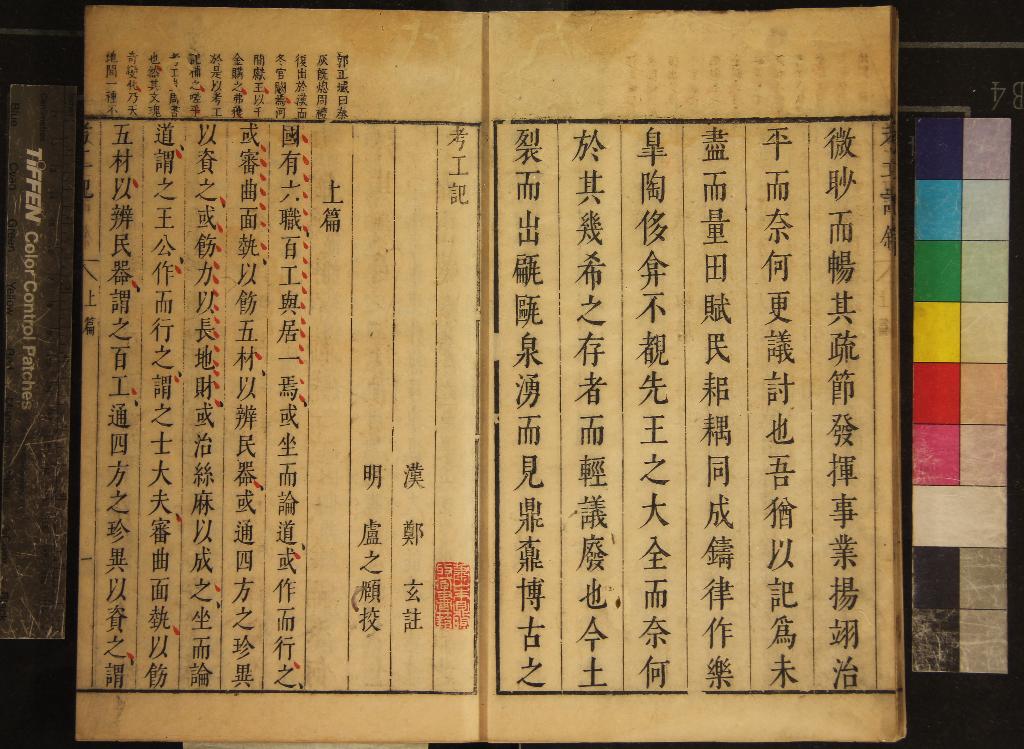 微眇而暢其疏節發揮事業揚翊治
平而奈何更議討也吾猶以記爲未
盡而量田賦民耜耦同成鑄律作樂
皐陶侈弇不覩先王之大全而奈何
於其幾希之存者而輕議廢也今土
裂而出甗甌泉湧而見鼎鼐博古之
考工記
漢 鄭 玄註
明 盧之頤挍
上篇
國有六職百工與居一焉或坐而論道或作而行之
或審曲面埶以飭五材以辨民器或通四方之珍異
以資之或飭力以長地財或治絲麻以成之坐而論
道謂之王公作而行之謂之士大夫審曲面埶以飭
五材以辨民器謂之百工通四方之珍異以資之謂
郭正域曰秦
灰旣熄周禮
復出於漢而
冬官闕焉河
間獻王以千
金購之弗獲
於是以考工
記補之
也然其文瑰
奇變化乃天
地間一種不
上篇
一
TIFFEN Color Control Patches
B4